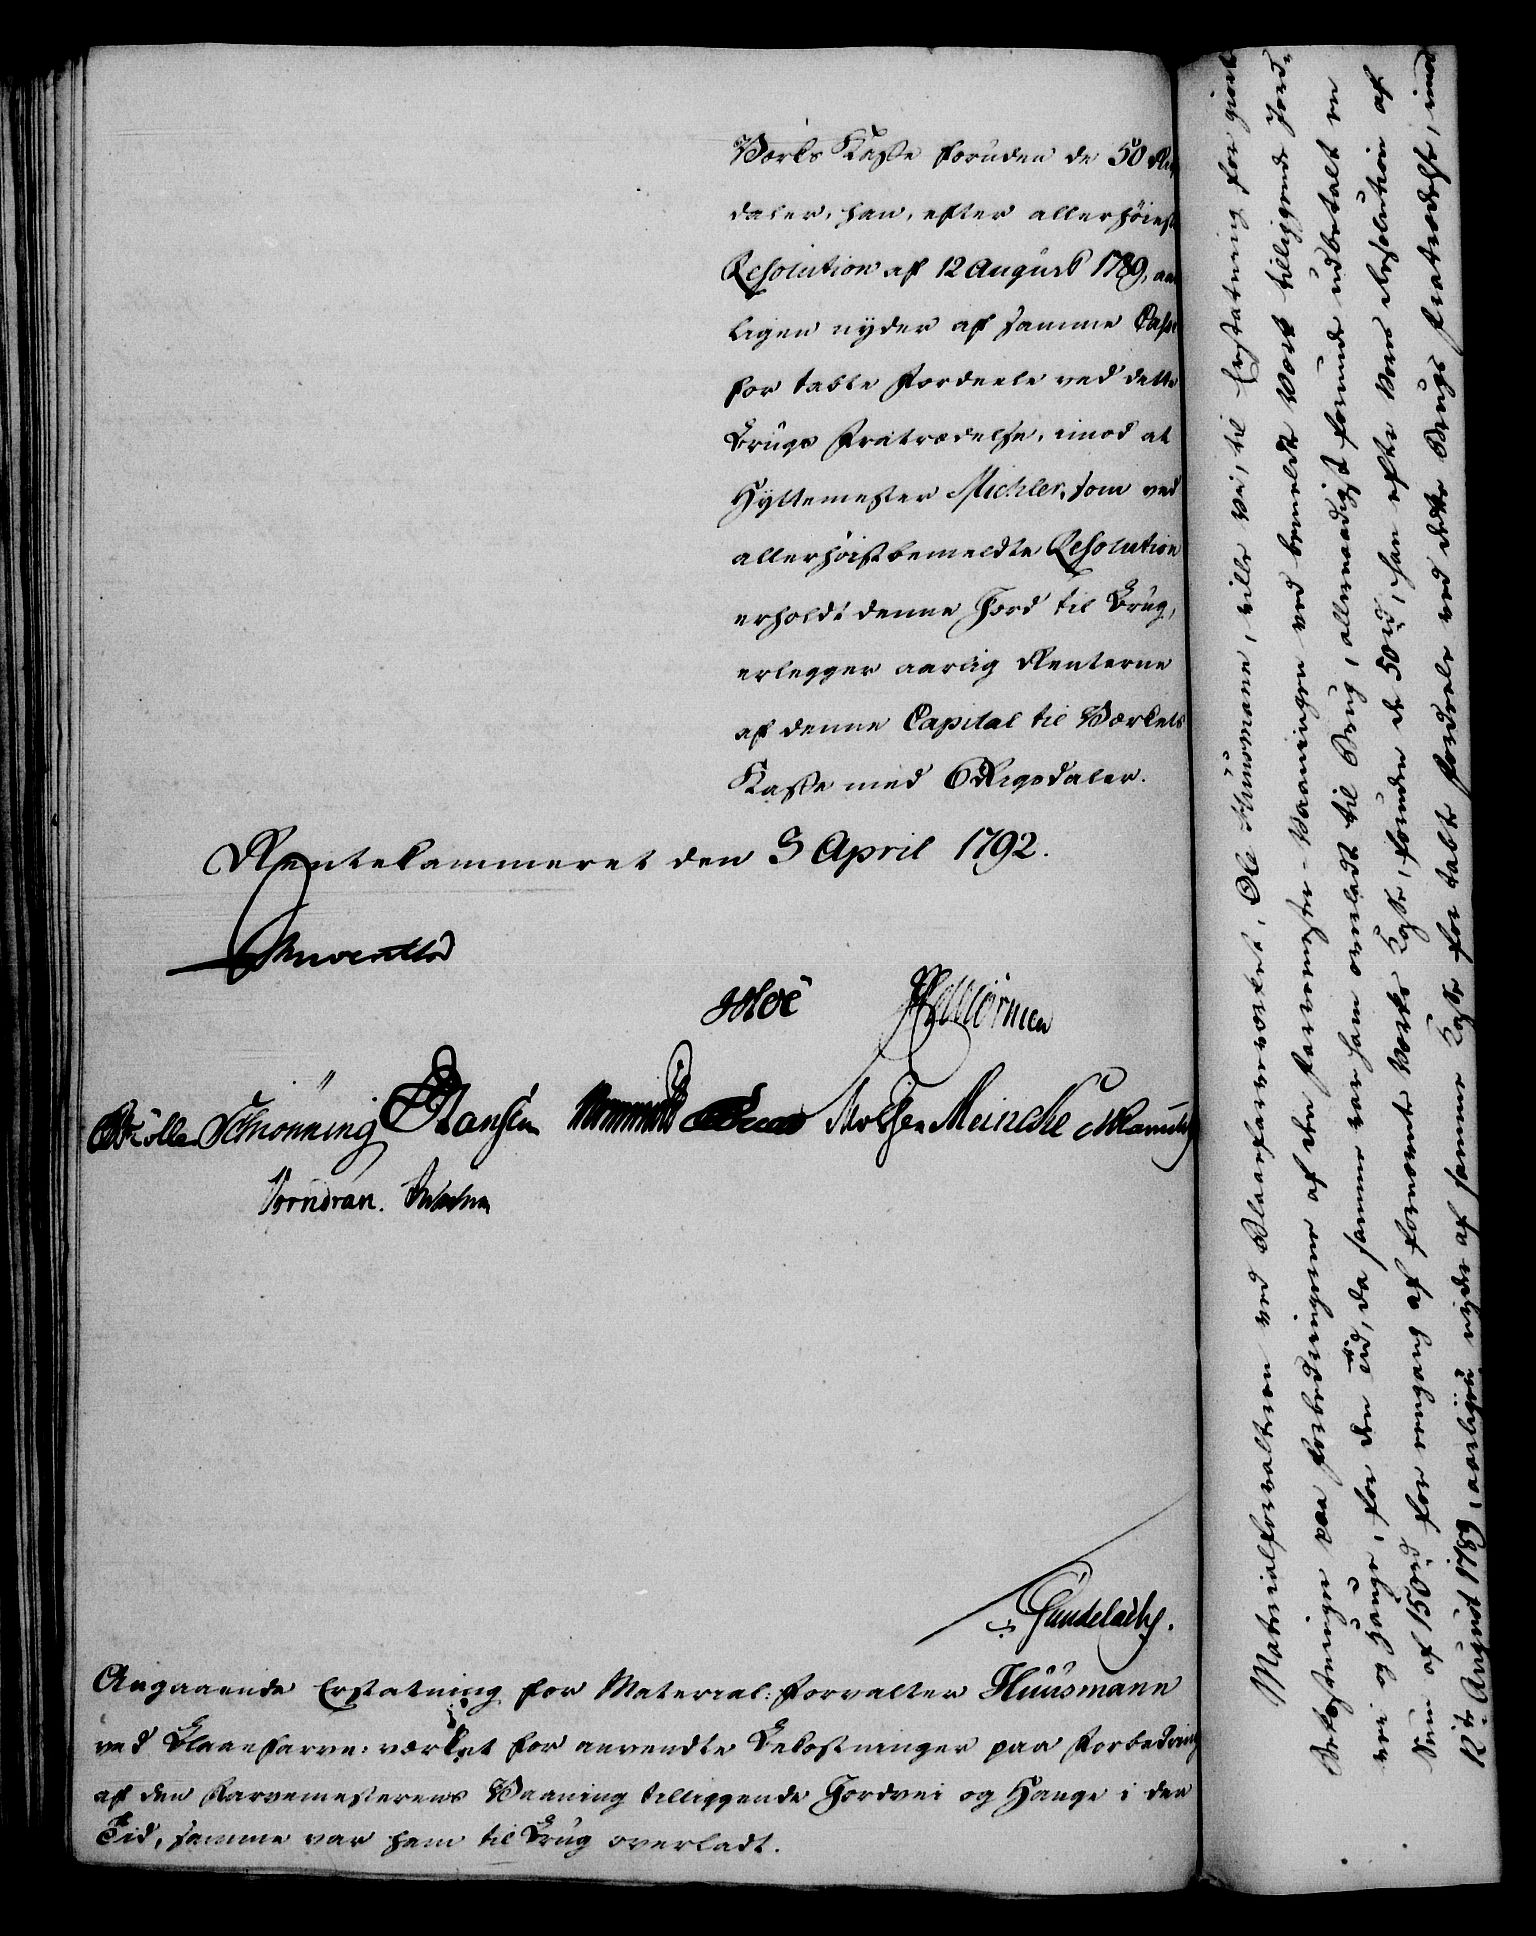 Værks Kasse foruden de 50 Rix
daler, han, efter allerhøieste
Resolution af 12 August 1789, aar
ligen nyder af samme Casse
for tabte Fordeele ved dette
Brugs Fratrædelse, imod at
Hyttemester Michler, som ved
allerhøistbemeldte Resolution
erholdt denne Jord til Brug,
erlegger aarlig Renterne
af denne Capital til Værkets
Kasse med 6 Rigsdaler.
Rentekammeret den 3 April 1792.
Hoë
Wørmer
Møller Schionning Hansen Meincke
Vorndran.
Gundelach.
Angaaende Erstatning for Material: Forvalter Huusmann
ved Blaaefarve: værket for anvendte Bekostninger paa Forbedring
af den Farvemesterens Vaaning tilliggende Jordvei og Hauge i den
Tid, samme var ham til Brug overladt.
Materialforvalteren ved Blaafarveværket, Ole Huusmann, ville Vi, til Erstatning for giorte
Bekostninger paa Forbedringerne af den Farvemester-Vaaningen ved bemeldte Værk tilliggende Jord-
vei og Hauge, for den Tid, da samme var ham overladt til Brug, allernaadigst forunde udbetalt en
Sum af 150 rd for eengang af fornævnte Værks Kasse, foruden de 50 rd, han efter Vores Resolution af
12te August 1789, aarligen nyder af samme Kasse for tabte Fordeele ved dette Brugs Fratrædelse, imod